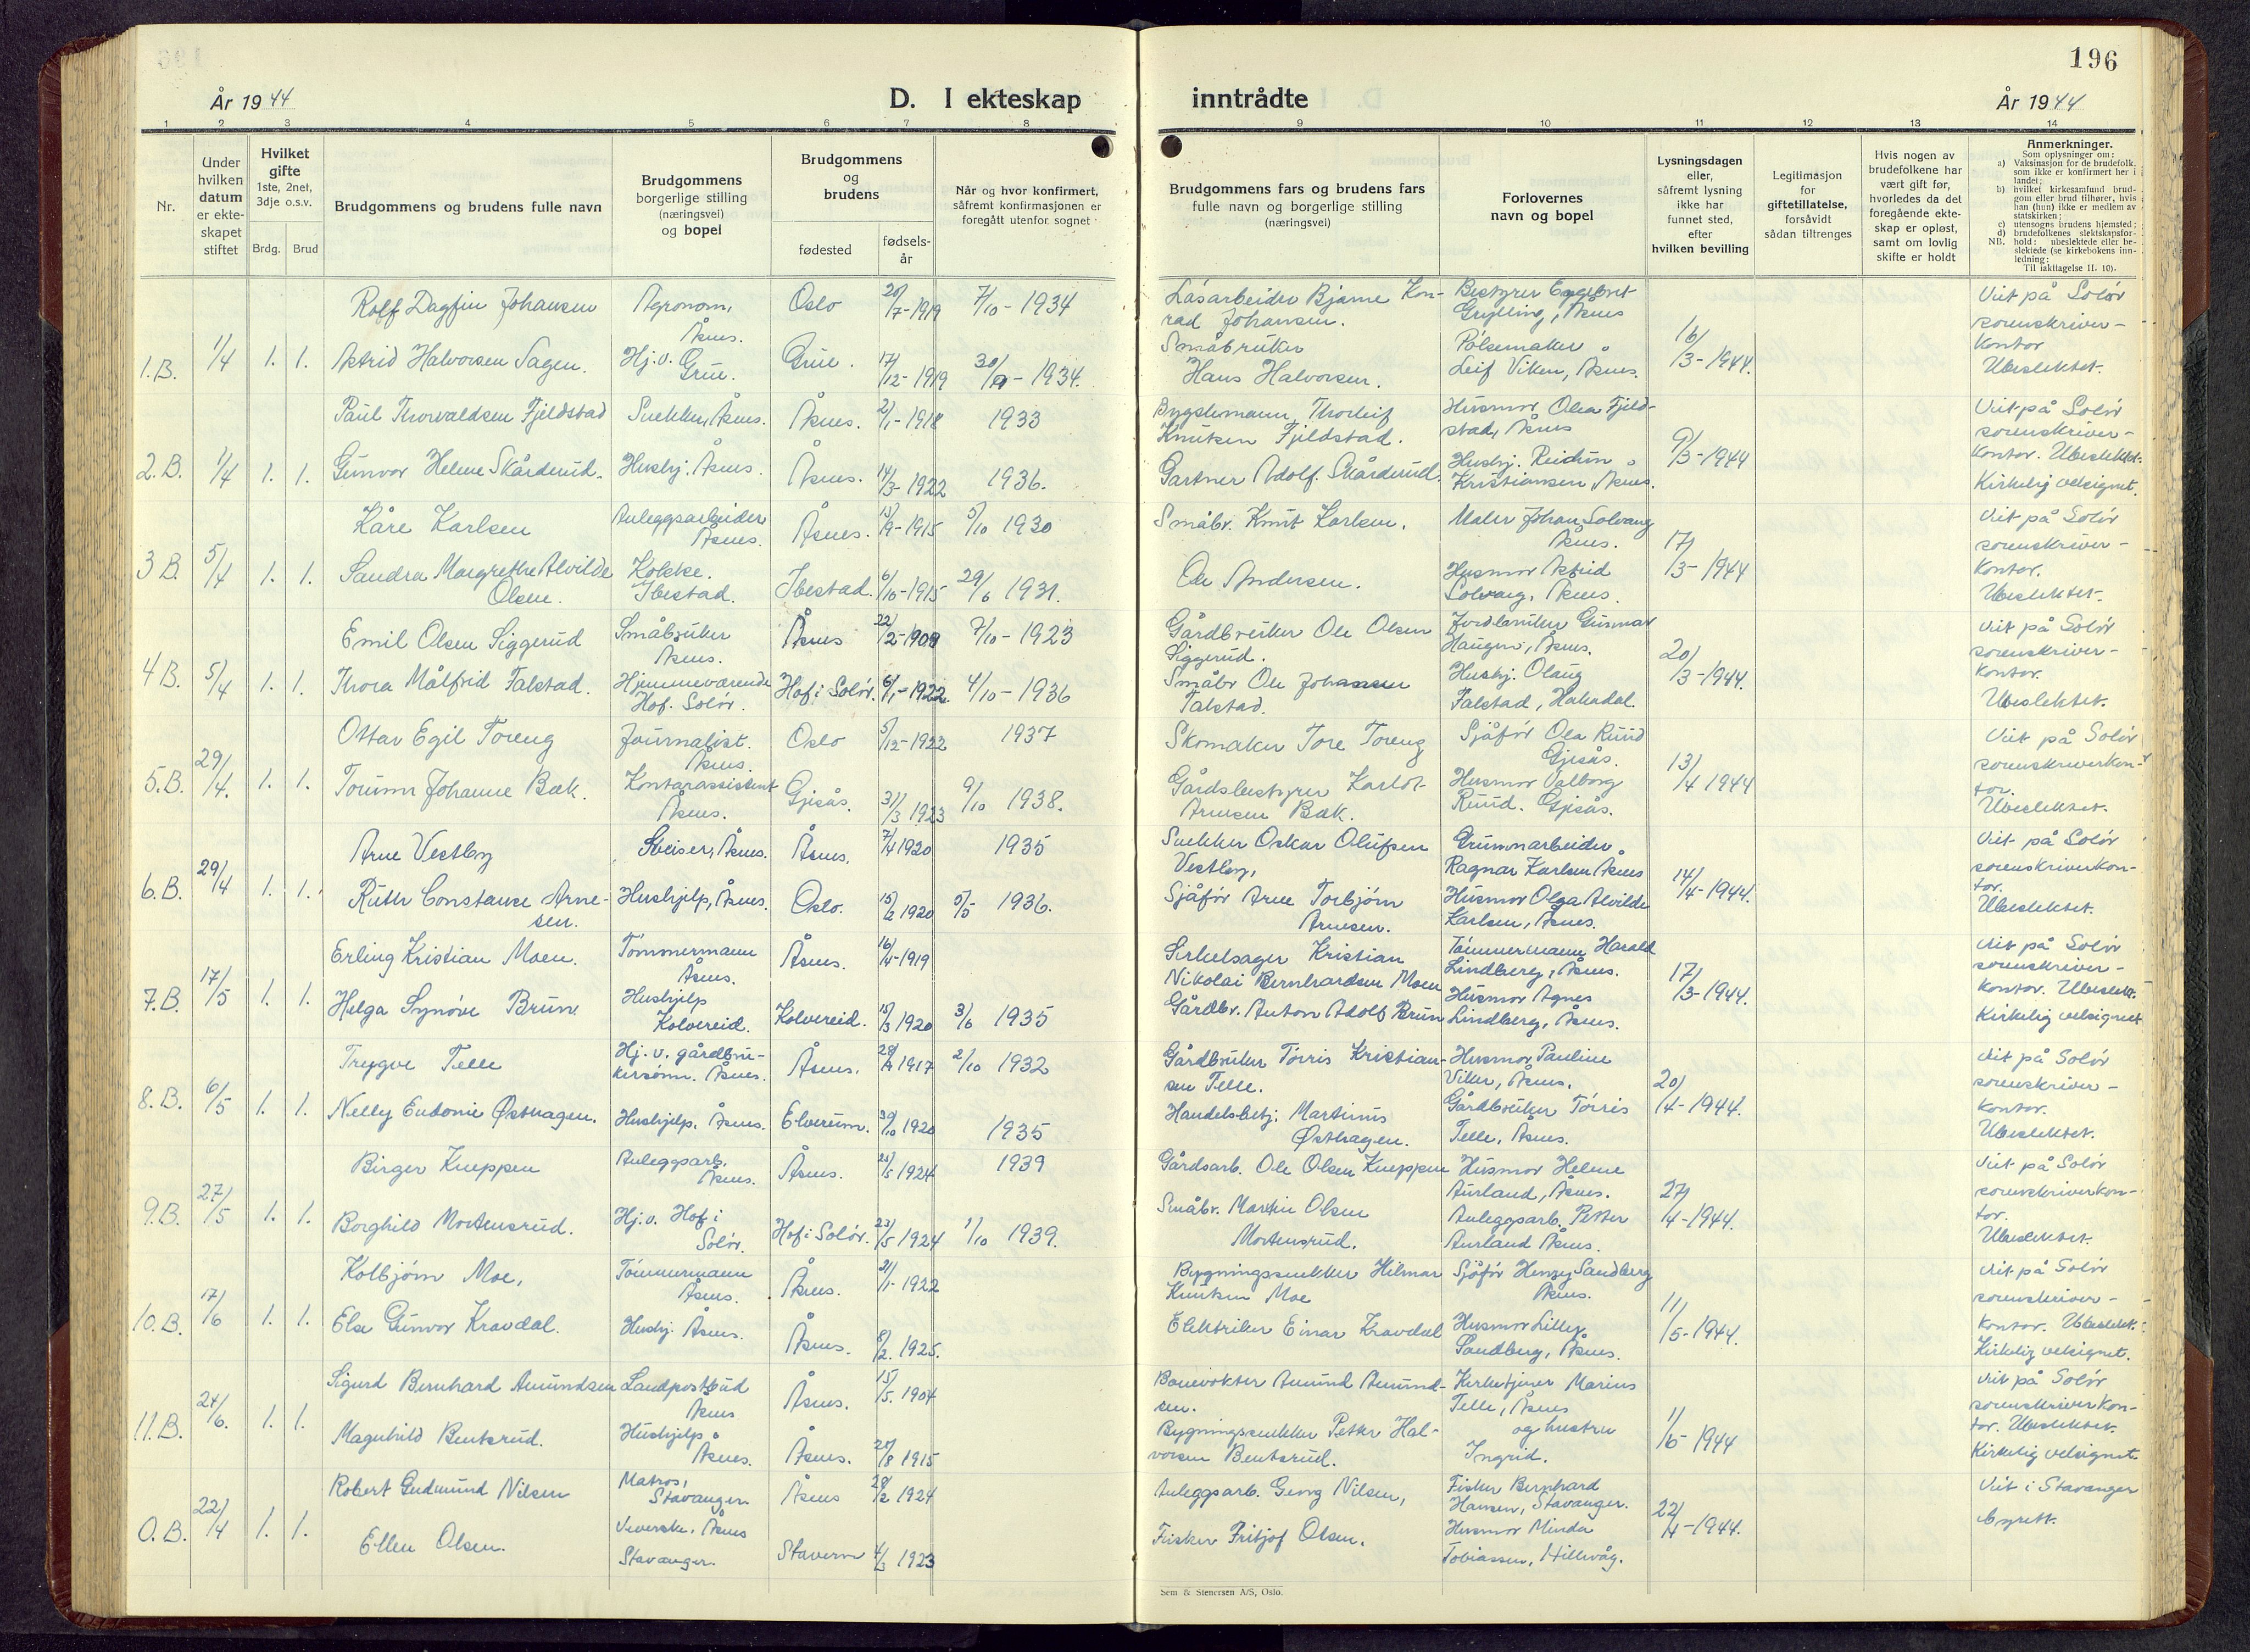 196
År 1944
D. I ekteskap
inntrådte
År 1944
1 2 3 4 5 6 7 8 9 10 11 12 13 14
Nr.
Under
hvilken
datum
er ekte-
skapet
stiftet
Hvilket
gifte
1ste, 2net,
3dje o.s.v.
Brdg. Brud
Brudgommens og brudens fulle navn
Brudgommens
borgerlige stilling
(næringsvei)
og bopel
Brudgommens
og
brudens
fødested
fødsels-
år
Når og hvor konfirmert,
såfremt konfirmasjonen er
foregått utenfor sognet
Brudgommens fars og brudens fars
fulle navn og borgerlige stilling
(næringsvei)
Forlovernes
navn og bopel
Lysningsdagen
eller,
såfremt lysning
ikke har
funnet sted,
efter
hvilken bevilling
Legitimasjon
for
giftetillatelse,
forsåvidt
sådan tiltrenges
Hvis nogen av
brudefolkene har
vært gift før,
hvorledes da det
foregående ekte-
skap er opløst,
samt om lovlig
skifte er holdt
Anmerkninger.
Som oplysninger om:
a) Vaksinasjon for de brudefolk,
som ikke er konfirmert her i
landet;
b) hvilket kirkesamfund brud-
gom eller brud tilhører, hvis
han (hun) ikke er medlem av
statskirken;
c) utensogns brudens hjemsted;
d) brudefolkenes slektskapsfor-
NB. hold: ubeslektede eller be-
slektede (se kirkebokens inn-
ledning:
Til iakttagelse II. 10).
1.B. 1/4 1. 1.
Rolf Dagfin Johansen
Agronom,
Åsnes.
Oslo
20/7-1919
7/10-1934
Låsarbeider Bjarne Kon-
rad Johansen.
Bestyrer
Åsnes
16/3-1944.
Viet på Solør
sorenskriver-
kontor
Ubeslektet.
Astrid Halvorsen Sagen.
Hj.v.
Grue.
Grue.
17/12-1919
1934.
Småbruker
Hans Halvorsen.
Pølsemaker
Leif Viken, Åsnes.
2.B. 1/4 1. 1.
Paul Thorvaldsen Fjeldstad
Snekker, Åsnes.
Åsnes.
2/1-1918
1933
Bygdemann Thorleif
Knutsen Fjeldstad.
Husmor Olea Fjeld-
stad, Åsnes
9/3-1944
Viet på Solør
sorenskriver-
kontor. Ubeslektet.
Kirkelig velsignet.
Gunvor Helene Skårderud.
Hushj. Åsnes.
Åsnes.
14/3-1922
1936.
Gartner Adolf Skårderud.
Hushj. Reidun
Kristiansen, Åsnes.
3 B. 5/4 1. 1.
Kåre Karlsen
Anleggsarbeider
Åsnes.
Åsnes.
13/9-1915
5/10 1930
Småbr. Knut Karlsen.
Maler Johan Solvang
Åsnes.
17/3-1944
Viet på Solør
sorenskriver-
kontor.
Ubeslektet.
Sandra Margrethe Alvilde
Olsen.
Kokke.
Ibestad.
Ibestad.
6/10-1915
29/6 1931.
Ole Andersen.
Husmor Astrid
Solvang, Åsnes.
4 B. 5/4 1. 1.
Emil Olsen Siggerud
Småbruker
Åsnes.
Åsnes
7/10-1923
Gårdbruker Ole Olsen
Siggerud.
Jordbruker Gunnar
Haugen, Åsnes.
20/3-1944.
Viet på Solør
sorenskriver-
kontor.
Ubeslektet.
Thora Målfrid Falstad.
Hjemmeværende
Hof. Solør.
Hof i Solør.
6/1-1922
4/10-1936
Småbr Ole Johansen
Falstad.
Hushj. Olaug
Falstad, Hakadal.
5.B. 29/4. 1. 1.
Ottar Egil Toreng
Journalist.
Åsnes.
Oslo
5/12-1922
1937
Skomaker Tore Toreng
Sjåfør Ola Ruud
Gjesås.
13/4 1944
Viet på Solør
sorenskriverkon-
tor.
Ubeslektet.
Torunn Johanne Bæk.
Kontorassistent
Åsnes.
Gjesås.
31/3 1923
9/10 1938.
Gårdsbestyrer Karlot
Arnesen Bæk.
Husmor Valborg
Ruud. Gjesås.
6.B. 29/4 1. 1.
Arne Vestby
Sveiser, Åsnes.
Åsnes.
7/4 1920
1935
Snekker Oskar Olufsen
Vestby,
Grunnarbeider
Ragnar Karlsen Åsnes
14/4-1944.
Viet på Solør
sorenskriverkon-
tor.
Ubeslektet.
Ruth Constance Arne-
sen.
Hushjelp, Åsnes.
Oslo.
15/2 1920
1936.
Sjåfør Arne Torbjørn
Arnesen.
Husmor Olga Alvilde
Karlsen, Åsnes.
7.B. 17/5 1. 1.
Erling Kristian Moen.
Tømmermann
Åsnes.
Åsnes.
16/4-1919
Sirkelsager Kristian
Nikolai Bernhardsen Moen
Tømmermann Harald
Lindberg, Åsnes.
17/3-1944.
Viet på Solør
sorenskriver-
kontor. Ubeslekt.
Kirkelig velsignet
Helga Synøve Brun
Hushjelp
Kolvereid.
Kolvereid.
15/3 1920
3/6 1935
Gårdbr. Anton Adolf Brun
Husmor Agnes
Lindberg, Åsnes.
8.B. 6/5 1. 1.
Trygve Telle
Hj.v. gårdbru-
kersønn. Åsnes.
Åsnes.
1917
2/10 1932
Gårdbruker Tørris Kristian-
sen Telle.
Husmor Pauline
Viker, Åsnes.
20/4-1944.
Viet på Solør
sorenskriver-
kontor.
Ubeslektet.
Nelly Eudonie Østhagen.
Hushjelp, Åsnes.
Elverum.
30/10 1920
1935
Handelsbetj. Martinus
Østhagen.
Gårdbruker Tørris
Telle, Åsnes.
9.B. 27/5 1. 1.
Birger Kneppen
Anleggsarb.
Åsnes.
Åsnes.
1924
1939
Gårdsarb. Ole Olsen Kneppen
Husmor Helene
Aurland, Åsnes.
27/4-1944.
Viet på Solør
sorenskriverkon-
tor.
Ubeslektet.
Borghild Mortensrud.
Hj.v. Hof i
Solør.
Hof i Solør.
23/5 1924
1/10 1939.
Småbr. Martin Olsen
Mortensrud.
Anleggsarb. Petter
Aurland Åsnes.
10.B. 17/6 1. 1.
Kolbjørn Moe,
Tømmermann
Åsnes.
Åsnes.
21/1-1922
Bygningssnekker Hilmar
Knutsen Moe
Sjåfør Henry Sandberg
Åsnes.
11/5-1944.
Viet på Solør
sorenskriver-
kontor. Ubeslekt.
Kirkelig velsignet.
Else Gunvor Kravdal.
Hushj. Åsnes.
Åsnes.
8/2. 1925.
Elektriker Einar Kravdal
Husmor Lilly
Sandberg, Åsnes.
11.B. 24/6. 1. 1.
Sigurd Bernhard Amundsen
Landpostbud
Åsnes
Åsnes.
15/5. 1904
Banevokter Amund Amund-
sen.
Kirketjener Marius
Telle, Åsnes
og hustru
Ingrid.
1944
Viet på Solør
sorenskriverkon-
tor. Ubeslektet.
Kirkelig velsignet.
Magnhild Bentsrud.
Hushjelp
Åsnes.
Åsnes.
20/8 1915
Bygningssnekker Petter Hal-
vorsen Bentsrud.
0.B. 22/4 1. 1.
Robert Gudmund Nilsen
Matros,
Stavanger.
Åsnes
28/2 1924
Anleggsarb. Georg Nilsen,
Fisker Bernhard
Hansen, Stavanger.
22/4-1944.
Viet i Stavanger
byrett.
Ellen Olsen.
Veverske, Åsnes
Stavanger.
Stavern
4/3 1923
Fisker Fritjof Olsen.
Husmor Minda
Tobiassen, Hillevåg.
Sem & Stenersen A/S, Oslo.